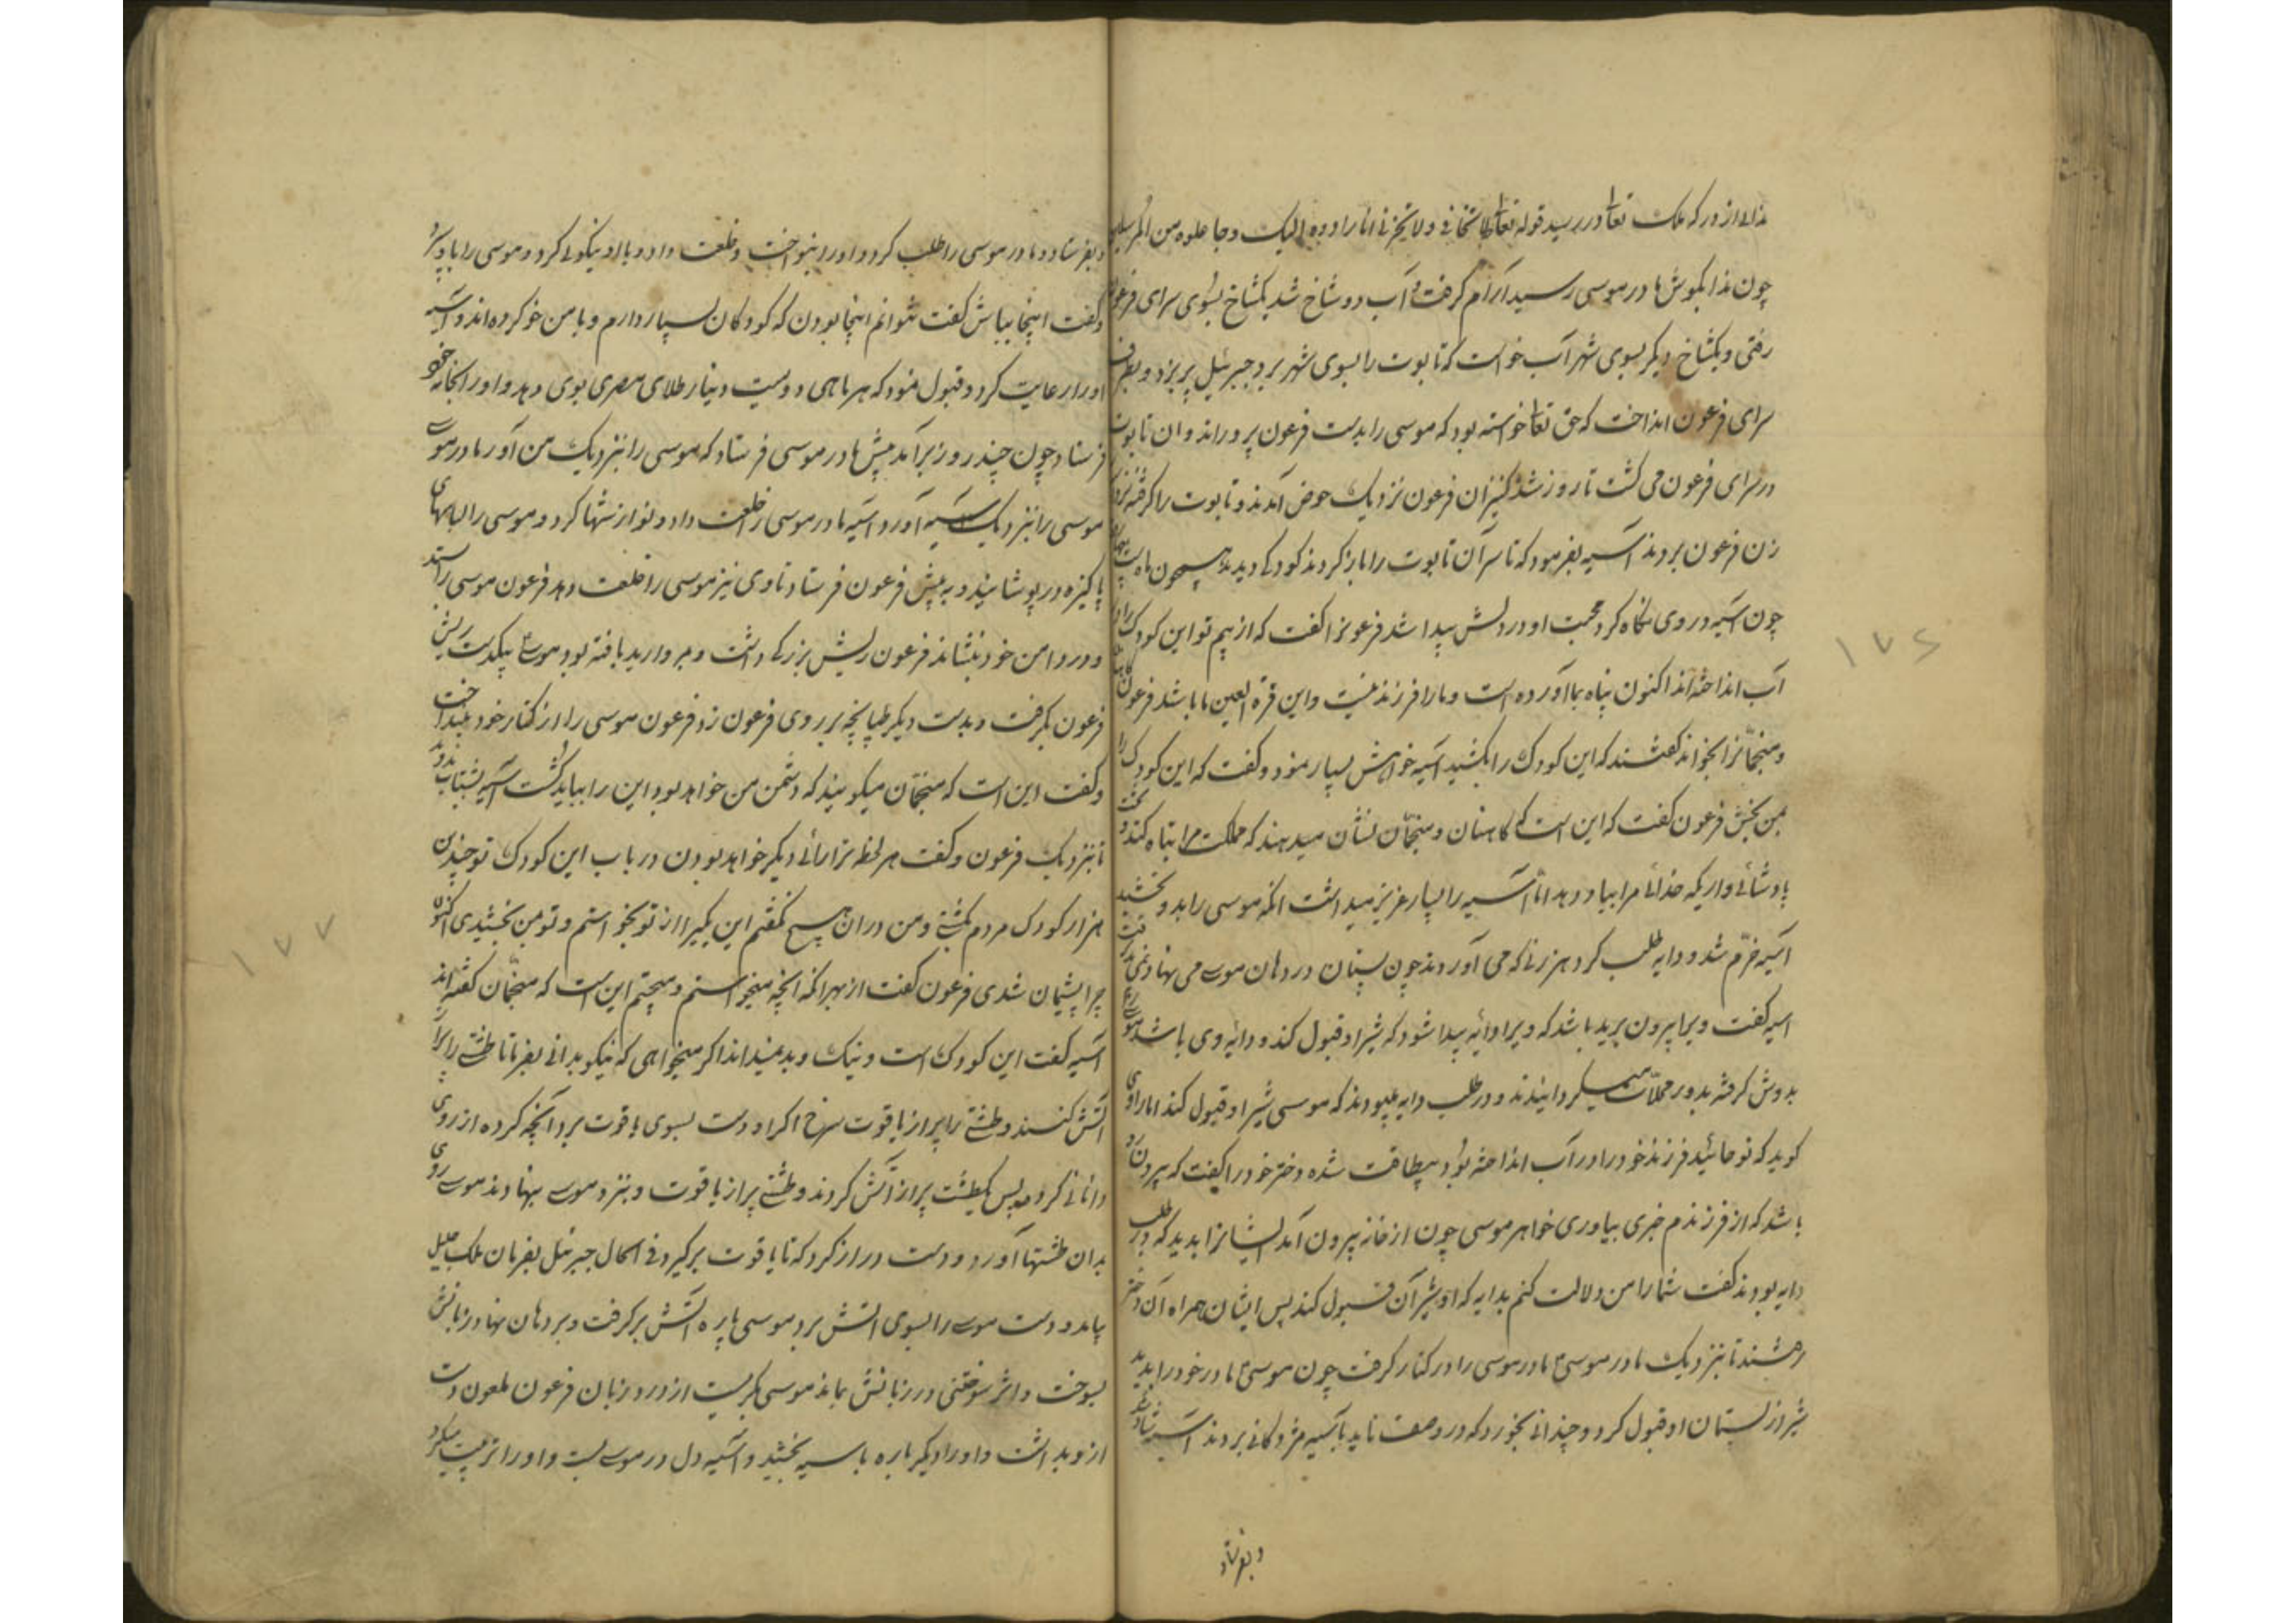 ندای از درکه ملک تعالی در رسید قوله تعالی لا تخافی و لا تحزنی انا رادوه الیک و جاعلوه من المرسلین
چون ندا بگوش مادر موسی رسید آرام گرفت و آب دو شاخ شد یکشاخ بسوی سرای فرعون
رفتی و یکشاخ دیگر بسوی شهر آب خواست که تابوت را بسوی شهر برد جبرئیل پر بزد و بطرف
سرای فرعون انداخت که حق تعالی خواسته بود که موسی را بدست فرعون پروراند و ان تابوت
در سرای فرعون می کشت تا روز شد کنیزان فرعون نزدیک حوض آمدند و تابوت را گرفته نزد
زن فرعون بردند آسیه بفرمود که تا سر آن تابوت را باز کردند کودکی دیدند همچون ماه
چون آسیه در وی نگاه کرد محبت او در دلش پیدا شد فرعونرا گفت که از بیم تو این کودک را در
آب انداخته‌اند اکنون پناه بما آورده است و ما را فرزند نیست و این قرة العین ما باشد فرعون
و منجمانرا بخواند گفتند که این کودک را بکشید آسیه خواهش بسیار نمود و گفت که این کودک را
بمن بخش فرعون گفت که این است که کاهنان و منجمان نشان میدهند که مملکت مرا تباه کند و تخت
پادشائی و اریکه خدائی مرا بباد دهد اما آسیه را بسیار عزیز میداشت انکه موسی را بدو بخشید
آسیه خرم شد و دایه طلب کرد هر زنی که می آوردند چون پستان در دهان موسی می نهاد نمی گرفت
اسیه گفت ویرا بیرون برید باشد که ویرا دایه پیدا شود که شیر او قبول کند و دایه وی باشد موسی را
بدوش گرفته بدور محلات میکردانیدند و در طلب دایه میبودند که موسی شیر او قبول کند اما راوی
کوید که نوحائید فرزند خود را در آب انداخته بود بیطاقت شده دختر خود را گفت که بیرون رو
باشد که از فرزندم خبری بیاوری خواهر موسی چون از خانه بیرون آمد ایشانرا بدید که در طلب
دایه بودند گفت شما را من دلالت کنم بدایه که او شیر آن قبول کند پس ایشان همراه آن دختر
رفتند تا بنزدیک مادر موسی مادر موسی را در کنار گرفت چون موسی مادر خود را بدید
شیر از پستان او قبول کرد و چندانی بخورد که در وصف ناید بآسیه مژدگانی بردند آسیه شاد شد
و بفرستاد
و بفرستاد و مادر موسی را طلب کرد و او را بنواخت و خلعت داد و با او نیکوئی کرد و موسی را باو سپرد
و گفت اینجا بباش گفت نتوانم اینجا بودن که کودکان بسیار دارم و با من خو کرده اند و آسیه
او را رعایت کرد و قبول نمود که هر ماهی دویست دینار طلای مصری بوی دهد و او را بخانه خود
فرستاد چون چند روز برآمد پیش مادر موسی فرستاد که موسی را بنزدیک من آور مادر موسی
موسی را بنزدیک آسیه آورد و آسیه مادر موسی را خلعت داد و نوازشها کرد و موسی را لباسهای
پاکیزه در پوشانید و به پیش فرعون فرستاد تا وی نیز موسی را خلعت دهد فرعون موسی را بستد
و در دامن خود بنشاند فرعون ریش بزرگی داشت و مروارید بافته بود موسی بیکدست ریش
فرعون بگرفت و بدست دیگر طپانچه بر روی فرعون زد فرعون موسی را از کنار خود بینداخت
و گفت این است که منجمان میگویند که دشمن من خواهد بود این را بباید کشت آسیه بشتاب بدوید
تا بنزدیک فرعون و گفت هر لحظه ترا رائی دیگر خواهد بودن در باب این کودک تو چندین
هزار کودک مردم کشتی و من در ان هیچ نگفتم این یکیرا از تو بخواستم و تو بمن بخشیدی اکنون
چرا پشیمان شدی فرعون گفت از بهر انکه انچه میخواستم و میجستم این است که منجمان گفته اند
آسیه گفت این کودک است و نیک و بد نمیداند اکر میخواهی که نیکو بدانی بفرما تا طشتی را پر از
آتش کنند و طشتی را پر از یاقوت سرخ اکر او دست بسوی یاقوت برد آنچه کرده از روی
دانائی کرده پس یکطشت پر از آتش کردند و طشتی پر از یاقوت و بنزد موسی بنهادند موسی روی
بدان طشتها آورد و دست دراز کرد که تا یاقوت برگیرد فی الحال جبرئیل بفرمان ملک جلیل
بیامد و دست موسی را بسوی آتش برد موسی پاره آتش برگرفت و بر دهان نهاد زبانش
بسوخت و اثر سوختنی در زبانش بماند موسی بگریست از درد زبان فرعون ملعون دست
از و بداشت و او را دیگر باره باسیه بخشید و آسیه دل در موسی بست و او را تربیت میکرد
۱۷۶
۱۷۷